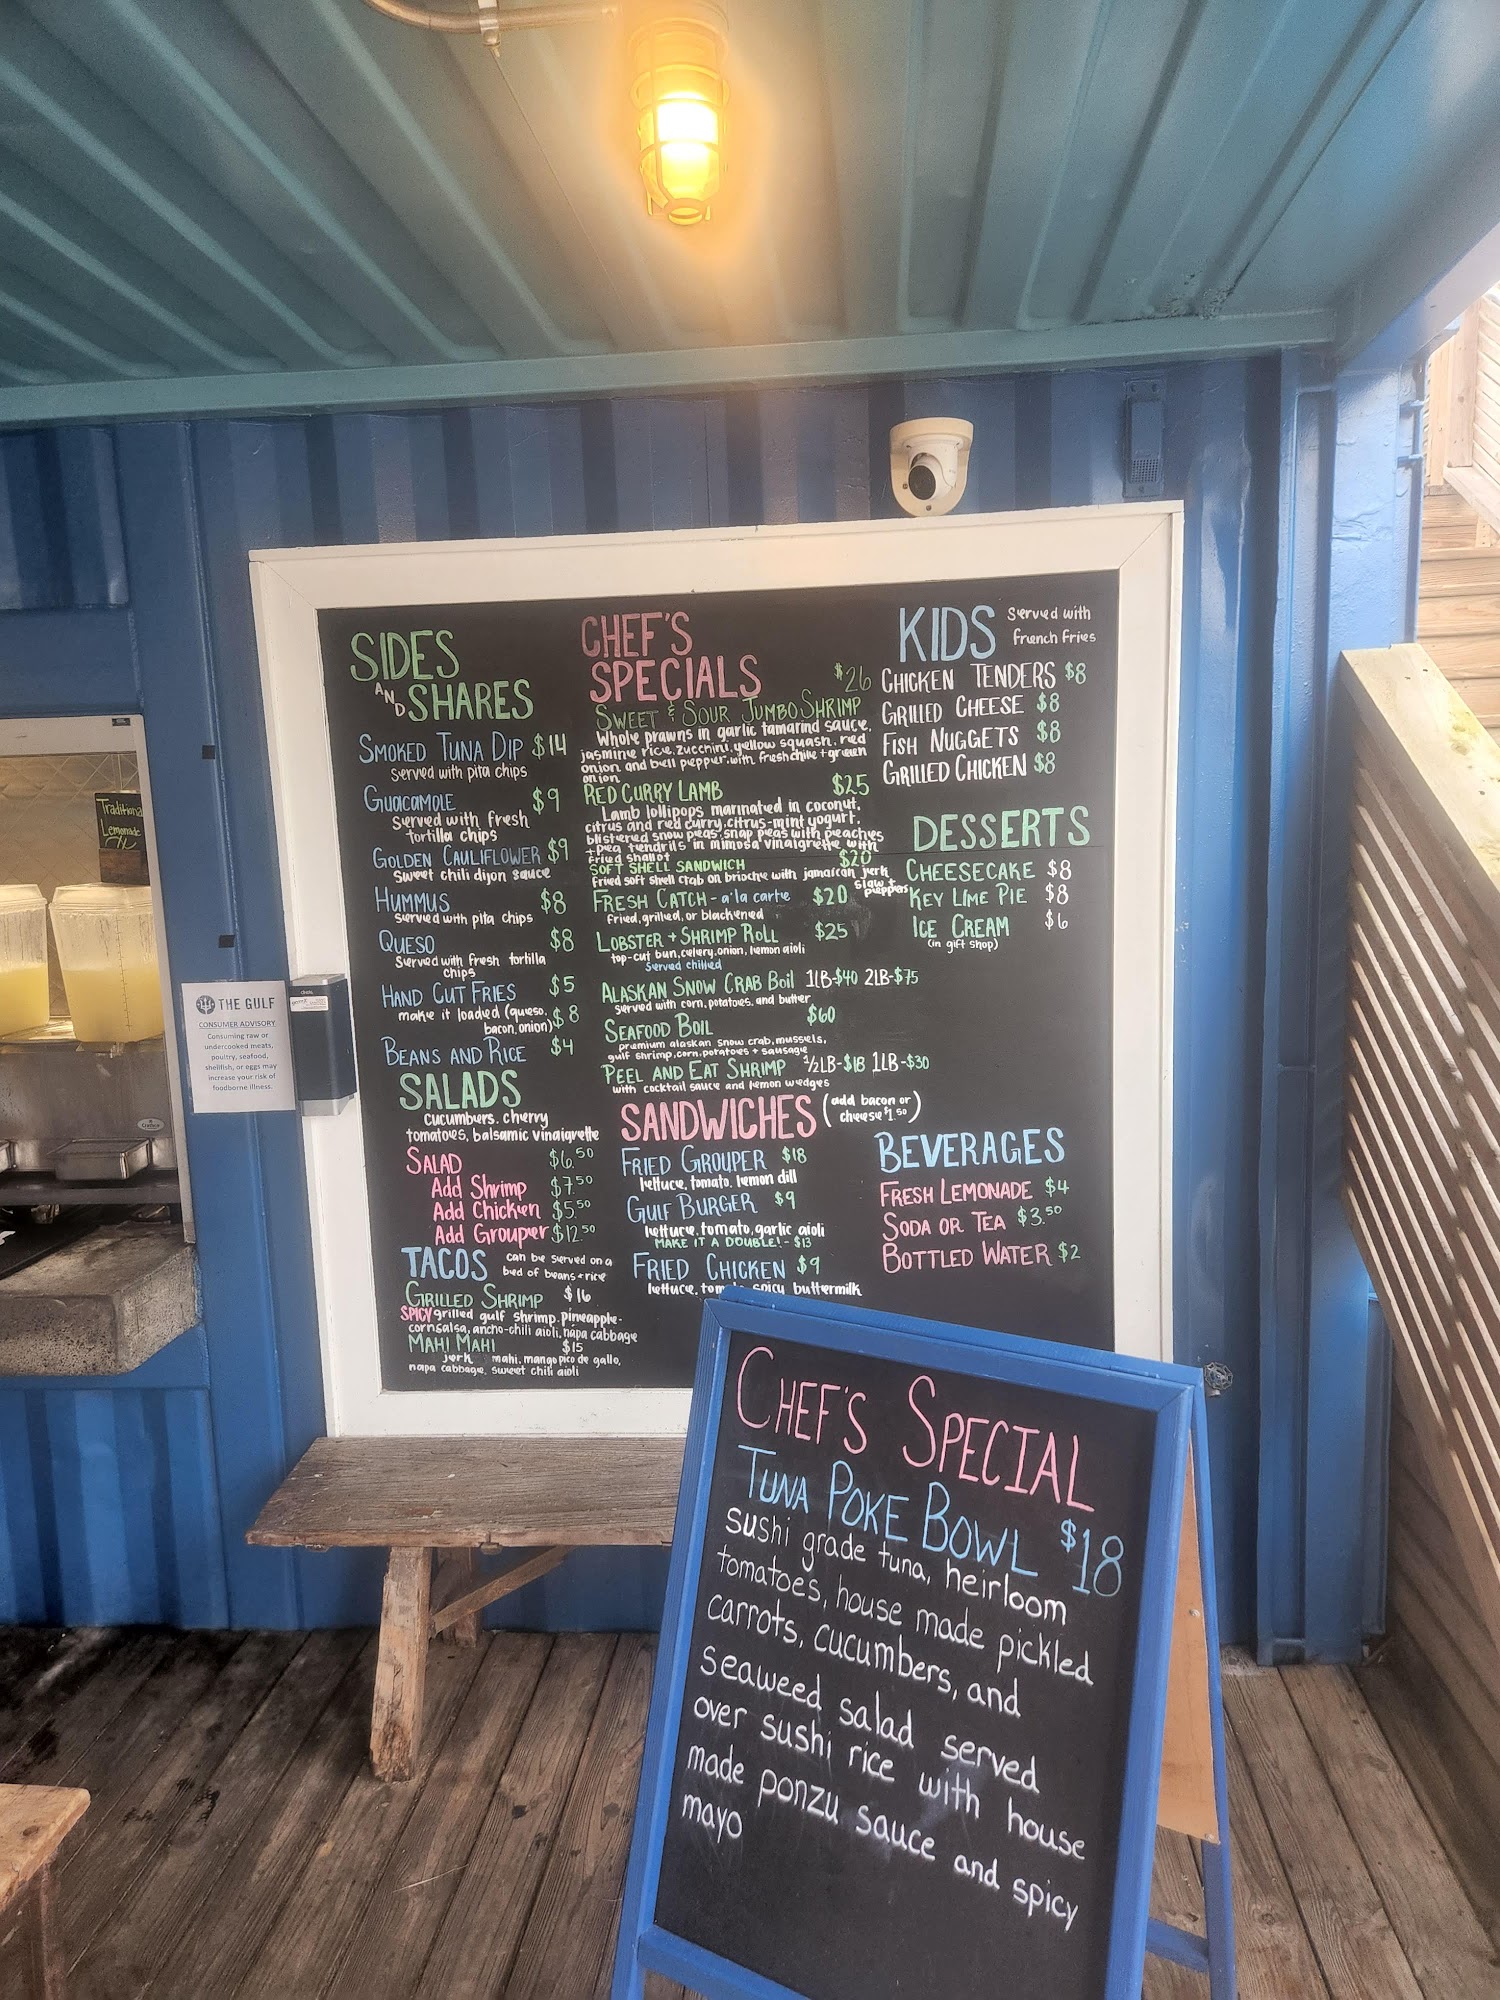 SIDES
AND SHARES
SMOKED TUNA DIP $14
served with pita chips
GUACAMOLE $9
served with fresh
tortilla chips
GOLDEN CAULIFLOWER $9
sweet chili dijon sauce
HUMMUS $8
served with pita chips
QUESO $8
served with fresh tortilla
chips
HAND CUT FRIES $5
make it loaded (queso, $8
bacon, onion)
BEANS AND RICE $4
SALADS
cucumbers, cherry
tomatoes, balsamic vinaigrette
SALAD $6.50
Add Shrimp $7.50
Add Chicken $5.50
Add Grouper $12.50
TACOS can be served on a
bed of beans + rice
GRILLED SHRIMP $16
SPICY grilled gulf shrimp, pineapple-
corn salsa, ancho-chili aioli, napa cabbage
MAHI MAHI $15
jerk mahi, mango pico de gallo,
napa cabbage, sweet chili aioli
CHEF'S
SPECIALS $26
SWEET & SOUR JUMBO SHRIMP
Whole prawns in garlic tamarind sauce,
jasmine rice, zucchini, yellow squash, red
onion and bell pepper, with fresh chile + green
onion
RED CURRY LAMB $25
Lamb lollipops marinated in coconut,
citrus and red curry, citrus-mint yogurt,
blistered snow peas, snap peas with peaches
+ pea tendrils in mimosa vinaigrette with
fried shallot
SOFT SHELL SANDWICH $20
fried soft shell crab on brioche with jamaican jerk
slaw + peppers
FRESH CATCH - a'la carte $20
fried, grilled, or blackened
LOBSTER + SHRIMP ROLL $25
top-cut bun, celery, onion, lemon aioli
served chilled
ALASKAN SNOW CRAB BOIL 1LB-$40 2LB-$75
served with corn, potatoes, and butter
SEAFOOD BOIL $60
premium alaskan snow crab, mussels,
gulf shrimp, corn, potatoes + sausage
PEEL AND EAT SHRIMP 1/2LB-$18 1LB-$30
with cocktail sauce and lemon wedges
SANDWICHES (add bacon or
cheese $1.50)
FRIED GROUPER $18
lettuce, tomato, lemon dill
GULF BURGER $9
lettuce, tomato, garlic aioli
MAKE IT A DOUBLE! - $13
FRIED CHICKEN $9
lettuce, spicy buttermilk
KIDS served with
french fries
CHICKEN TENDERS $8
GRILLED CHEESE $8
FISH NUGGETS $8
GRILLED CHICKEN $8
DESSERTS
CHEESECAKE $8
KEY LIME PIE $8
ICE CREAM $6
(in gift shop)
BEVERAGES
FRESH LEMONADE $4
SODA OR TEA $3.50
BOTTLED WATER $2
Traditional
Lemonade
THE GULF
CONSUMER ADVISORY
Consuming raw or
undercooked meats,
poultry, seafood,
shellfish, or eggs may
increase your risk of
foodborne illness.
CHEF'S SPECIAL
TUNA POKE BOWL $18
sushi grade tuna, heirloom
tomatoes, house made pickled
carrots, cucumbers, and
seaweed salad served
over sushi rice with house
made ponzu sauce and spicy
mayo